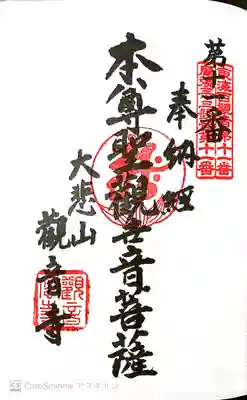 第十一番
奉納經
本尊聖觀世音菩薩
大悲山
觀音寺
CS CamScanner でスキャン